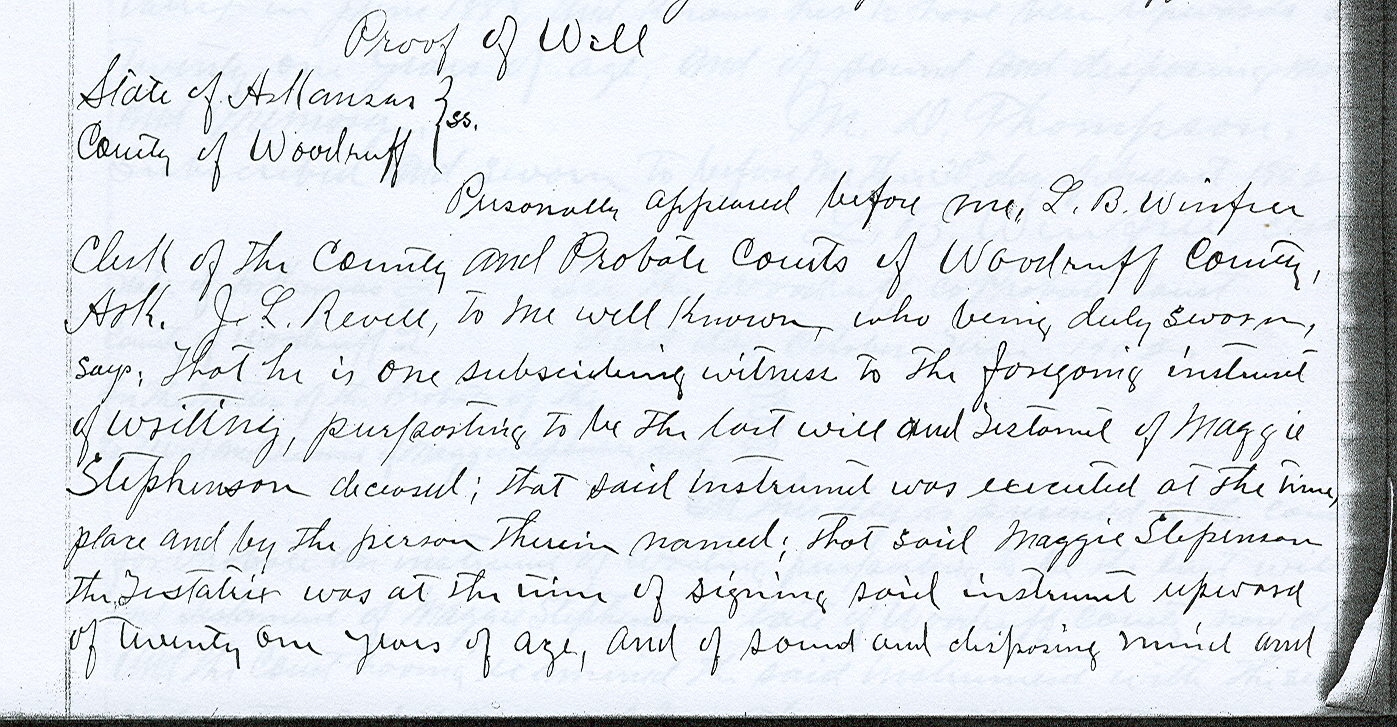 Proof of Will
State of Arkansas } ss.
County of Woodruff
Personally appeared before me, L. B. Winfree
Clerk of the County and Probate Courts of Woodruff County,
Ark. J. L. Revell, to me well known, who being duly sworn,
says, that he is one subscribing witness to the foregoing instrumt
of writing, purporting to be the last will and Testamt of Maggie
Stephenson deceased; that said instrumt was executed at the time,
place and by the person therein named; that said Maggie Stepenson
the Testatrix was at the time of signing said instrumt upward
of twenty one years of age, and of sound and disposing mind and